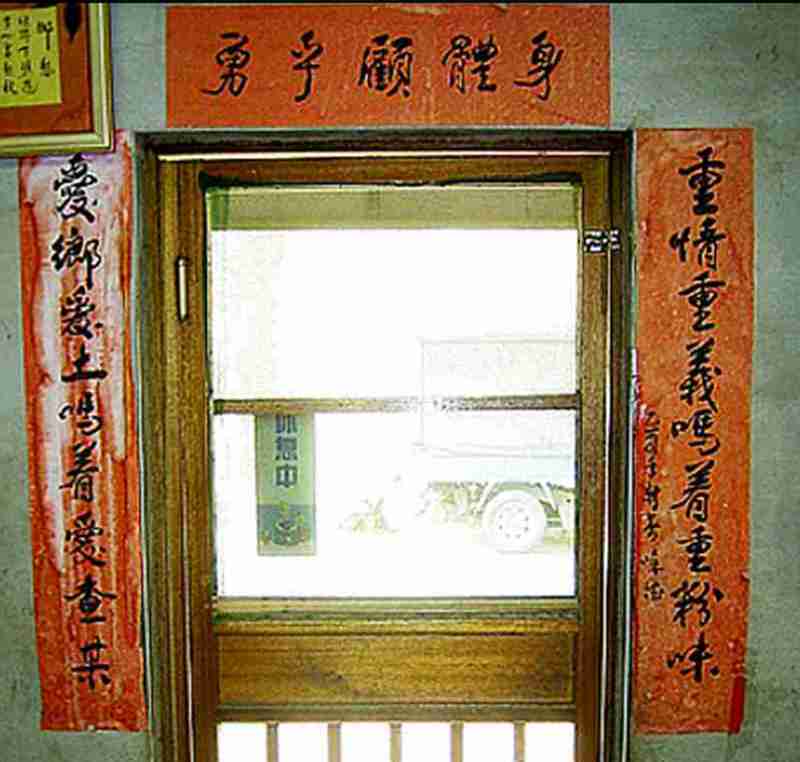 身體顧乎勇
重情重義嗎着重粉味
愛鄉愛土嗎着愛查某
休息中